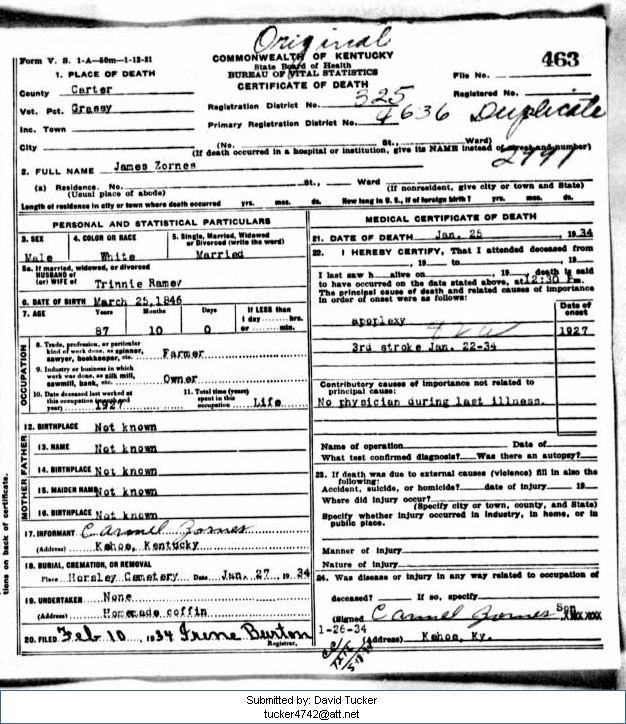 Original
Form V. S. 1-A—50m—1-12-31
COMMONWEALTH OF KENTUCKY
State Board of Health
BUREAU OF VITAL STATISTICS
CERTIFICATE OF DEATH
463
File No.
Registered No.
Duplicate
1. PLACE OF DEATH
County Carter
Vot. Pct. Grassy
Inc. Town
City
Registration District No. 325
Primary Registration District No. 4636
(No. St., Ward)
(If death occurred in a hospital or institution, give its NAME instead of street and number)
2. FULL NAME James Zornes
(a) Residence. No. St., Ward
(Usual place of abode) (If nonresident, give city or town and State)
Length of residence in city or town where death occurred yrs. mos. ds. How long in U. S., if of foreign birth? yrs. mos. ds.
PERSONAL AND STATISTICAL PARTICULARS
3. SEX
Male
4. COLOR OR RACE
White
5. Single, Married, Widowed
or Divorced (write the word)
Married
5a. If married, widowed, or divorced
HUSBAND of
(or) WIFE of Trinnie Ramey
6. DATE OF BIRTH March 25, 1846
7. AGE Years Months Days If LESS than
1 day hrs.
87 10 0 or min.
OCCUPATION
8. Trade, profession, or particular
kind of work done, as spinner,
sawyer, bookkeeper, etc. Farmer
9. Industry or business in which
work was done, as silk mill,
sawmill, bank, etc. Owner
10. Date deceased last worked at
this occupation (month and
year) 1927
11. Total time (years)
spent in this
occupation Life
12. BIRTHPLACE Not known
FATHER
13. NAME Not known
14. BIRTHPLACE Not known
MOTHER
15. MAIDEN NAME Not known
16. BIRTHPLACE Not known
17. INFORMANT Carmel Zornes
(Address) Kehoe, Kentucky
18. BURIAL, CREMATION, OR REMOVAL
Place Horsley Cemetery Date Jan. 27, 1934
19. UNDERTAKER None
(Address) Homemade coffin
20. FILED Feb 10, 1934 Irene Burton
Registrar.
MEDICAL CERTIFICATE OF DEATH
21. DATE OF DEATH Jan. 25, 1934
22. I HEREBY CERTIFY, That I attended deceased from
, 19 to , 19
I last saw h alive on , 19 , death is said
to have occurred on the date stated above, at 12:30 Pm.
The principal cause of death and related causes of importance
in order of onset were as follows:
Date of
onset
apoplexy 1927
3rd stroke Jan. 22-34
Contributory causes of importance not related to
principal cause:
No physician during last illness.
Name of operation Date of
What test confirmed diagnosis? Was there an autopsy?
23. If death was due to external causes (violence) fill in also the
following:
Accident, suicide, or homicide? date of injury 19
Where did injury occur?
(Specify city or town, county, and State)
Specify whether injury occurred in industry, in home, or in
public place.
Manner of injury
Nature of injury
24. Was disease or injury in any way related to occupation of
deceased? If so, specify
(Signed Carmel Zornes Son
1-26-34
(Address) Kehoe, Ky.
tions on back of certificate.
Submitted by: David Tucker
tucker4742@att.net